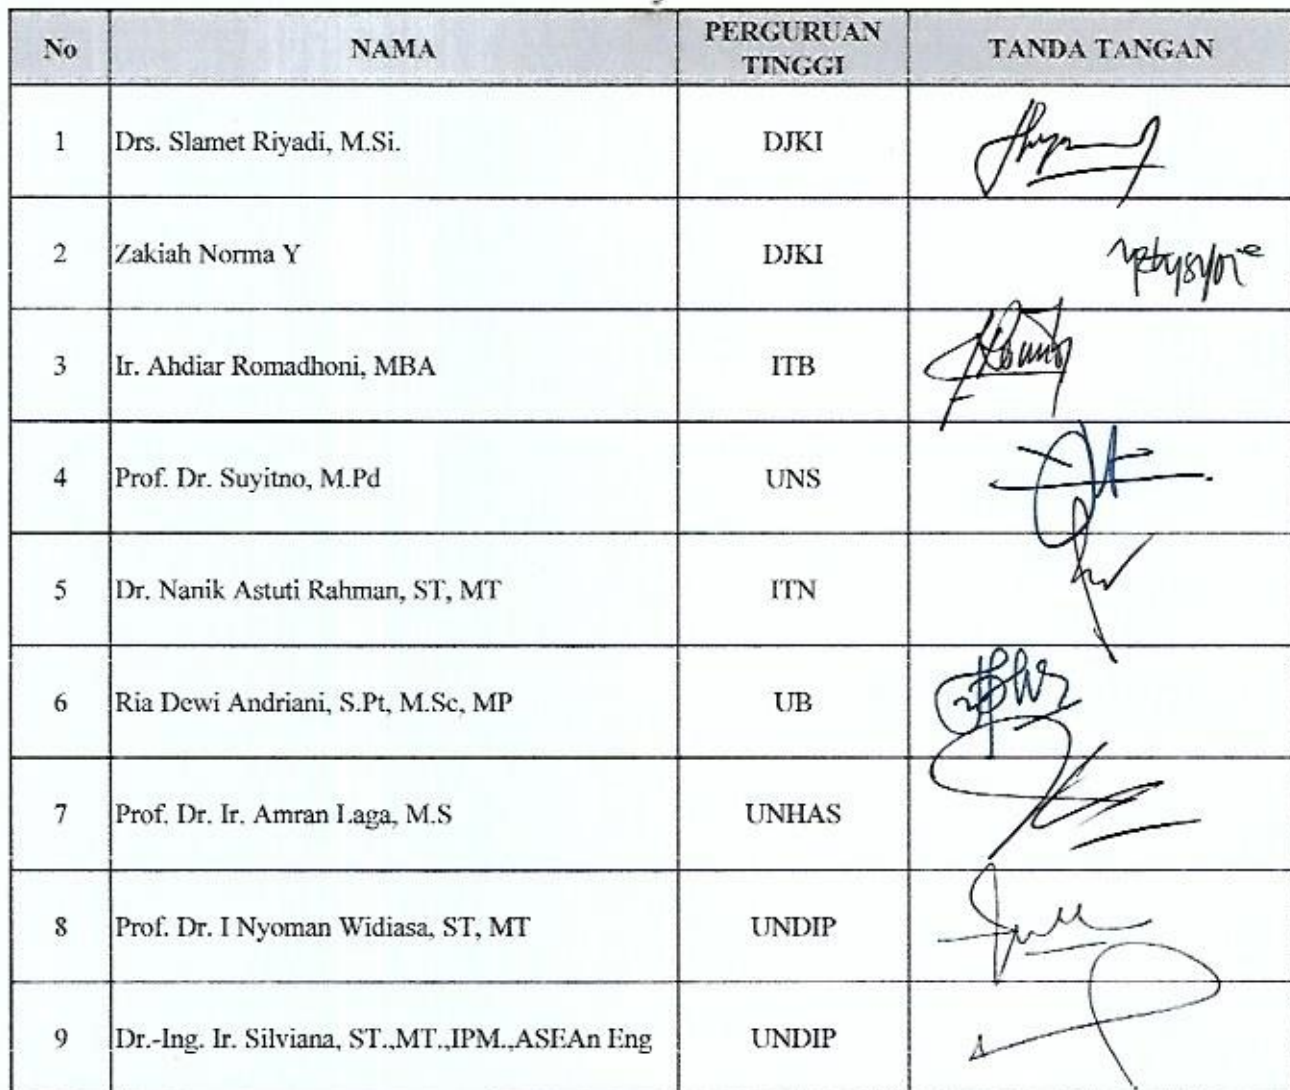 No NAMA PERGURUAN TINGGI TANDA TANGAN
1 Drs. Slamet Riyadi, M.Si. DJKI
2 Zakiah Norma Y DJKI
3 Ir. Ahdiar Romadhoni, MBA ITB
4 Prof. Dr. Suyitno, M.Pd UNS
5 Dr. Nanik Astuti Rahman, ST, MT ITN
6 Ria Dewi Andriani, S.Pt, M.Sc, MP UB
7 Prof. Dr. Ir. Amran Laga, M.S UNHAS
8 Prof. Dr. I Nyoman Widiasa, ST, MT UNDIP
9 Dr.-Ing. Ir. Silviana, ST.,MT.,IPM.,ASEAn Eng UNDIP